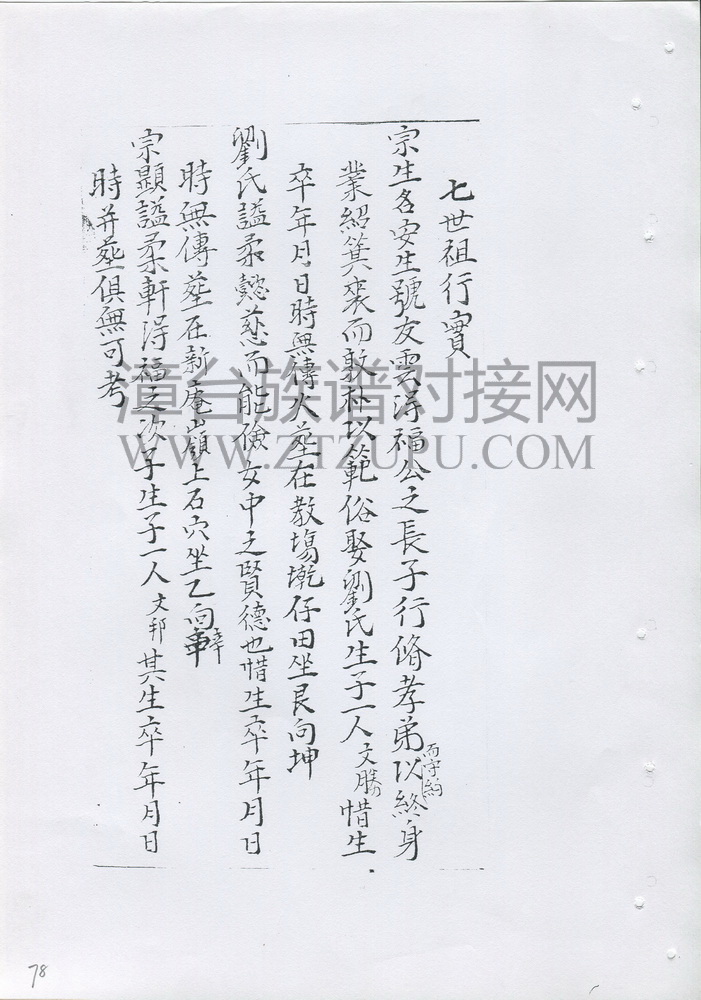 七世祖行實
宗生名安生號友雲淂福公之長子行脩孝弟而守約以終身
業紹箕裘而敦朴以範俗娶劉氏生子一人文勝惜生
卒年月日時無傳火塟在教塲墘仔田坐艮向坤
劉氏謚柔懿慈而能儉女中之賢德也惜生卒年月日
時無傳塟在新庵嶺上石穴坐乙向辛
宗顯謚柔軒淂福之次子生子一人文邦其生卒年月日
時并塟俱無可考
漳台族谱对接网
WWW.ZTZUPU.COM
78